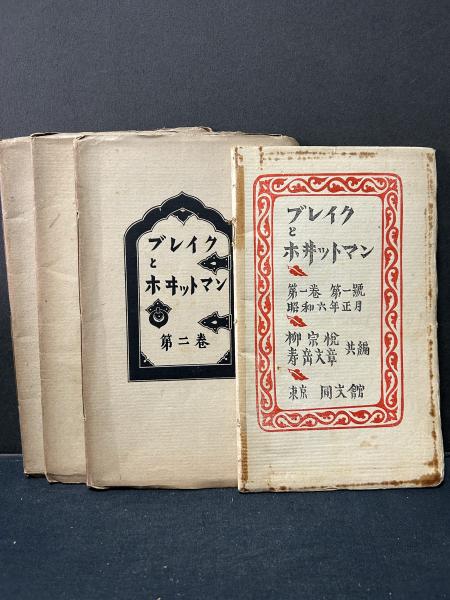 ブレイク
と
ホヰットマン
第二巻
ブレイク
と
ホヰットマン
第一巻 第一號
昭和六年正月
柳宗悦
寿岳文章 共編
東京 同文館